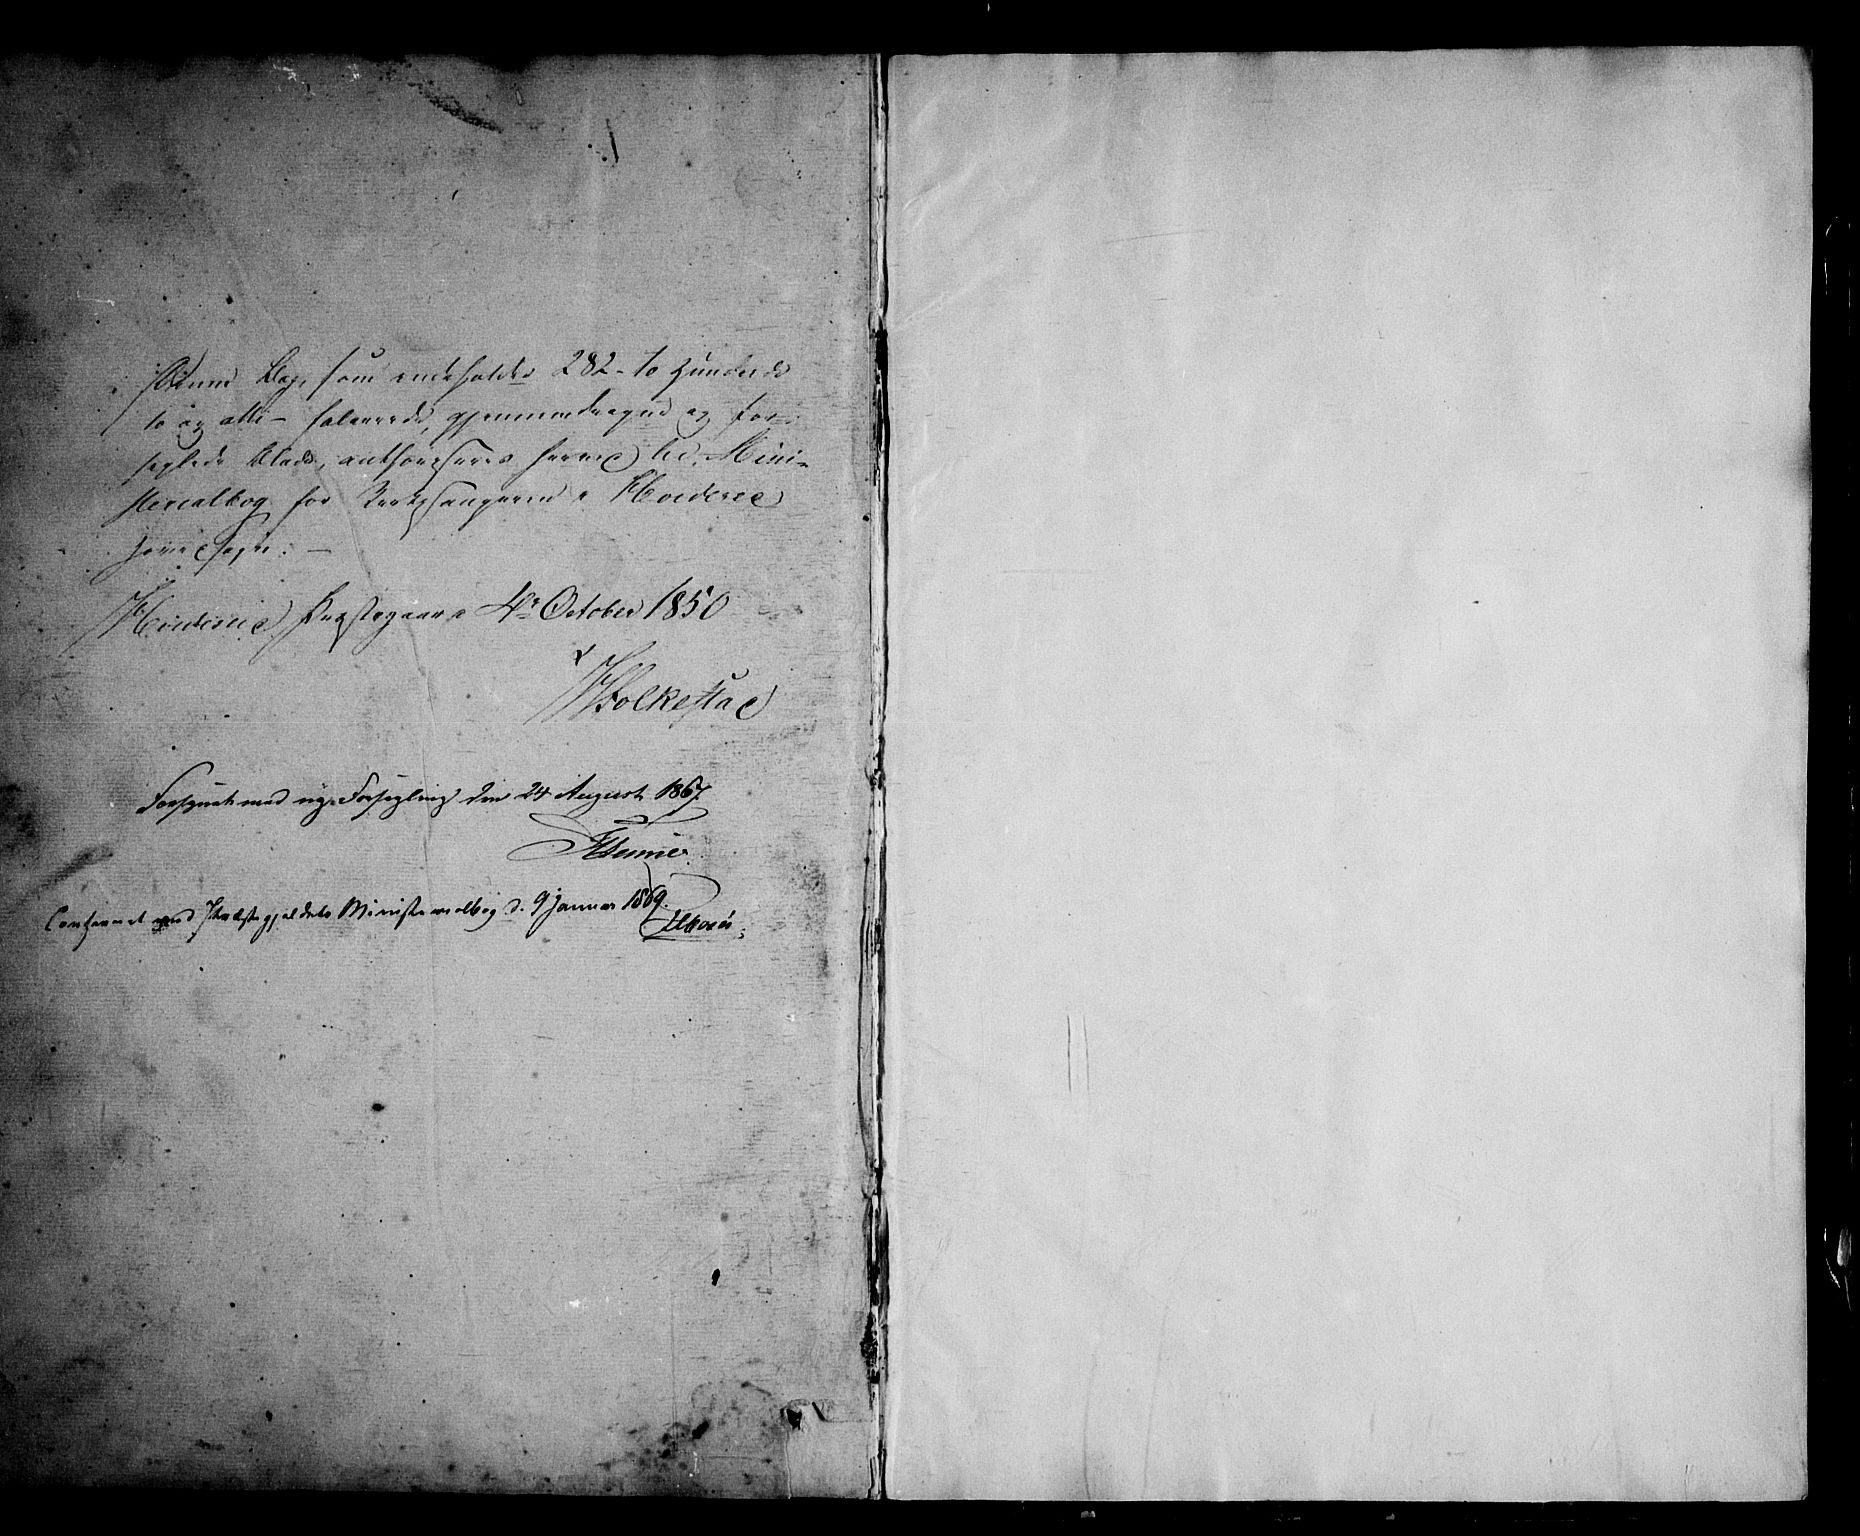 Denne Bog, som indeholder 282 - to Hundrede
to og otti - folierede, gjennemdragne og for-
seglede Blade, authoriseres herved til Mini-
sterialbog for Kirkesangeren i Hviteseid
Hovedsogn. —
Hviteseid Præstegaard 4de October 1850
Folkestad
Forsynet med ny Forsegling den 24 August 1867.
Confereret med Præstegjældets Ministerialbog d. 9 Januar 1869.